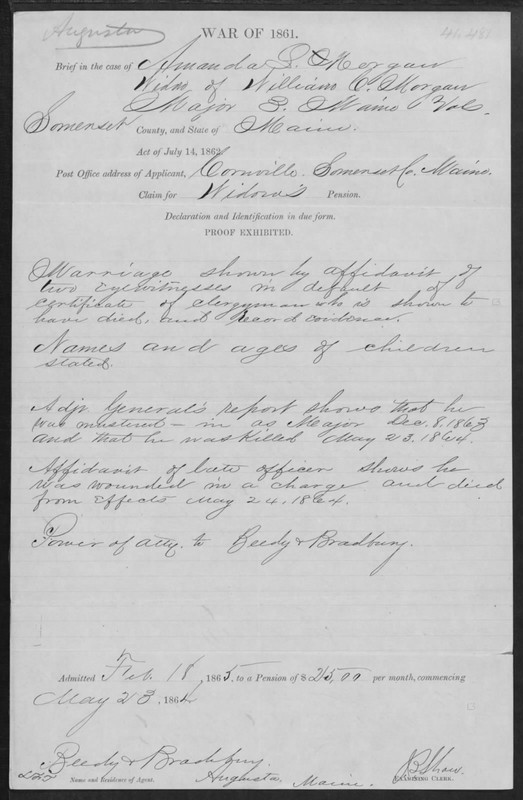 Augusta
WAR OF 1861.
Brief in the case of Amanda S. Morgan
Widow of William C. Morgan
Major 3. Maine Vols.
Somerset County, and State of Maine.
Act of July 14, 1862.
Post Office address of Applicant, Cornville. Somerset Co. Maine.
Claim for Widow's Pension.
Declaration and Identification in due form.
PROOF EXHIBITED.
Marriage shown by affidavit of
two eyewitnesses in default of
certificate of clergyman who is shown to
have died, and record evidence.
Names and ages of children
stated.
Adjt General's report shows that he
was mustered-in as Major Dec. 8, 1863
and that he was killed May 23, 1864.
Affidavit of late officer shows he
was wounded in a charge and died
from effects May 24, 1864.
Power of atty. to Beedy & Bradbury.
Admitted Feb. 18, 1865, to a Pension of $25,00 per month, commencing
May 23, 1864
Beedy & Bradbury.
Augusta, Maine.
Name and Residence of Agent.
J B Shaw.
EXAMINING CLERK.